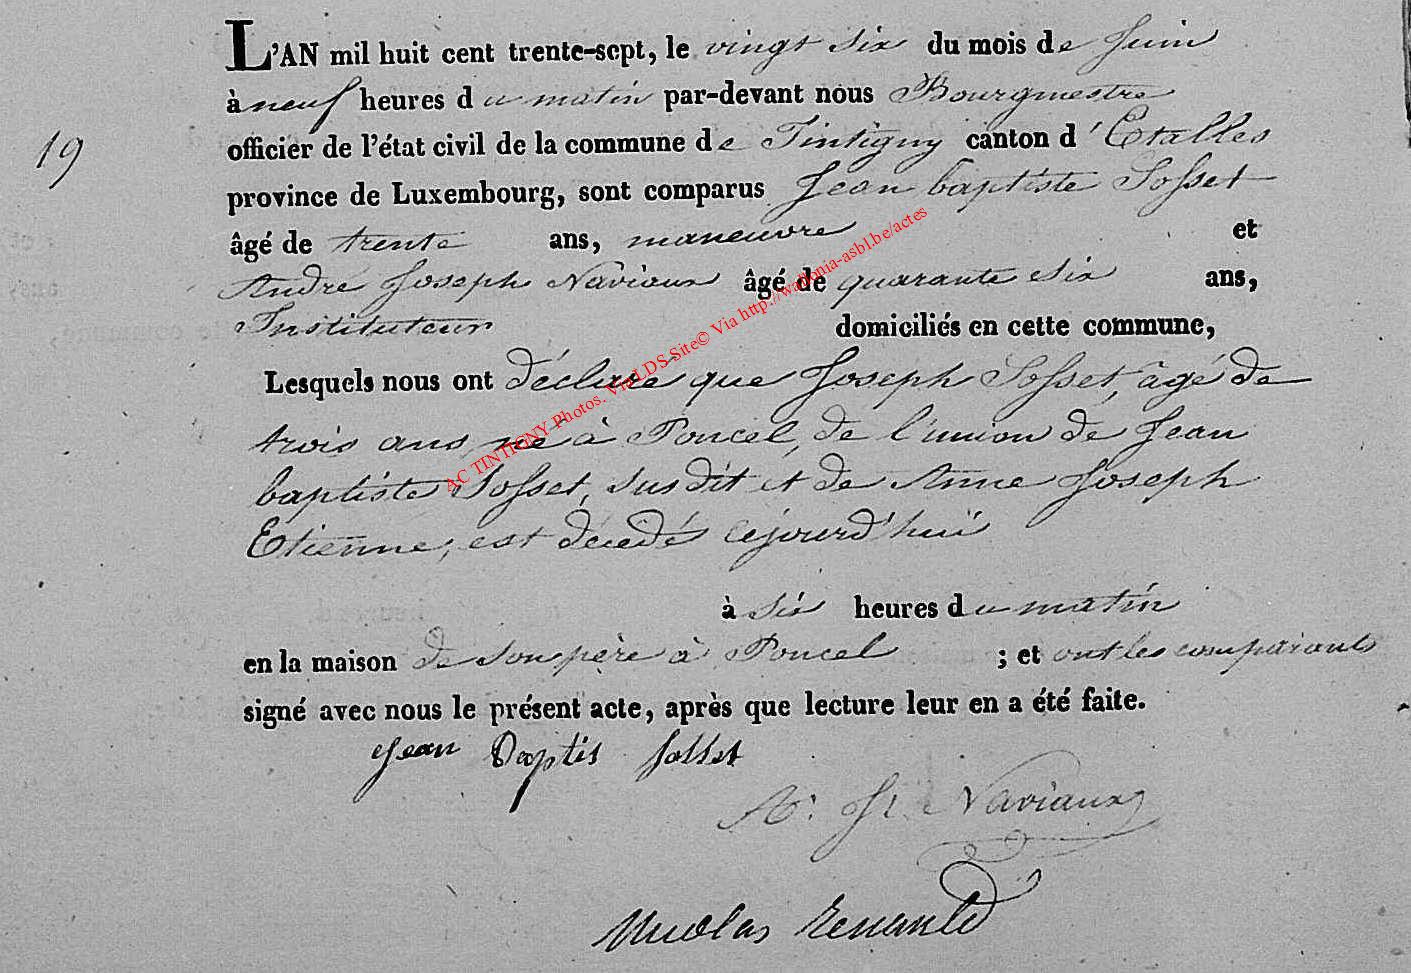 L'AN mil huit cent trente-sept, le vingt six du mois de Juin
à neuf heures du matin par-devant nous Bourgmestre
officier de l'état civil de la commune de Tintigny canton d'Etalles
19
province de Luxembourg, sont comparus Jean baptiste Sosset
âgé de trente ans, maneuvre et
André Joseph Naviaux âgé de quarante six ans,
Instituteur domiciliés en cette commune,
Lesquels nous ont déclaré que Joseph Sosset, âgé de
trois ans, né à Poncel, de l'union de Jean
baptiste Sosset, susdit et de Anne Joseph
Etienne, est décédé cejourd'hui
à six heures du matin
en la maison de son père à Poncel ; et ont les comparants
signé avec nous le présent acte, après que lecture leur en a été faite.
Jean Baptis Sosset
A. J. Naviaux
Nicolas Renauld
AC TINTIGNY Photos. Via LDS Site© Via http://wallonia-asbl.be/actes